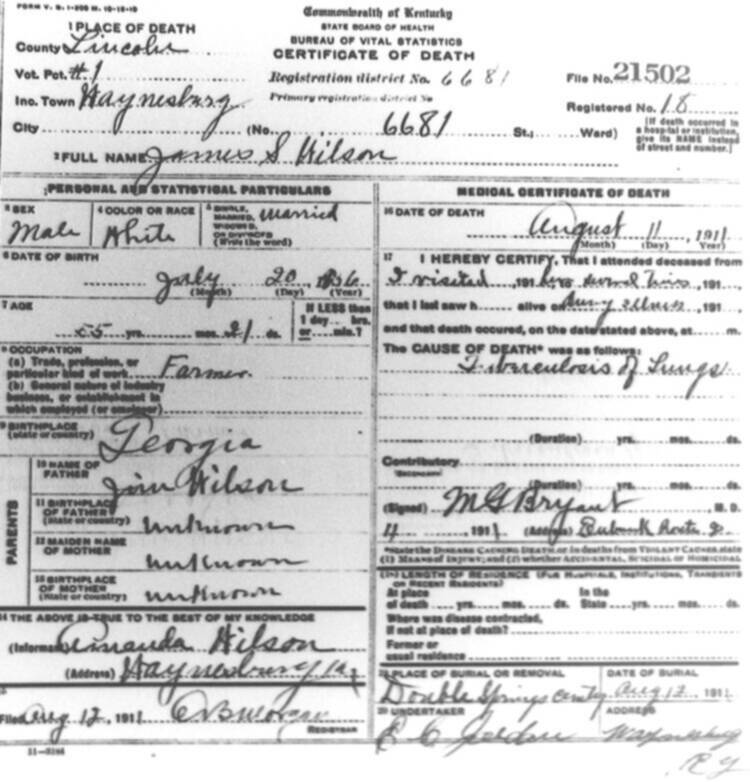 FORM V. S. 1-
Commonwealth of Kentucky
STATE BOARD OF HEALTH
BUREAU OF VITAL STATISTICS
CERTIFICATE OF DEATH
1 PLACE OF DEATH
County Lincoln
Vot. Pct. #1
Registration district No. 6681
File No. 21502
Inc. Town Waynesburg
Primary registration district No
Registered No. 18
City (No. 6681 St.; Ward)
[If death occurred in a hospital or institution, give its NAME instead of street and number.]
2 FULL NAME James S Wilson
PERSONAL AND STATISTICAL PARTICULARS
3 SEX
Male
4 COLOR OR RACE
White
5 SINGLE, MARRIED, WIDOWED, OR DIVORCED
(Write the word)
Married
6 DATE OF BIRTH
July 20
(Month) (Day) (Year)
7 AGE
55 yrs. mos. 21 ds.
If LESS than 1 day hrs. or min.?
8 OCCUPATION
(a) Trade, profession, or particular kind of work
Farmer
(b) General nature of industry business, or establishment in which employed (or employer)
9 BIRTHPLACE
(state or country)
Georgia
PARENTS
10 NAME OF FATHER
Jim Wilson
11 BIRTHPLACE OF FATHER
(State or country)
unknown
12 MAIDEN NAME OF MOTHER
unknown
13 BIRTHPLACE OF MOTHER
(State or country)
unknown
14 THE ABOVE IS TRUE TO THE BEST OF MY KNOWLEDGE
(Informant Amanda Wilson
(Address) Waynesburg Ky
15
Filed Aug 12, 1911
REGISTRAR
11-
MEDICAL CERTIFICATE OF DEATH
16 DATE OF DEATH
August 11, 1911
(Month) (Day) (Year)
17 I HEREBY CERTIFY, That I attended deceased from
I visited, 191
that I last saw h alive on, 191
and that death occured, on the date stated above, at m.
The CAUSE OF DEATH* was as follows:
Tuberculosis of Lungs
(Duration) yrs. mos. ds.
Contributory
(Duration) yrs. mos. ds.
(Signed) M G Bryant M. D.
191 (Address) Eubank Route 2
*State the DISEASE CAUSING DEATH, or in deaths from VIOLENT CAUSES, state
(1) MEANS OF INJURY; and (2) whether ACCIDENTAL, SUICIDAL or HOMICIDAL
LENGTH OF RESIDENCE (FOR HOSPITALS, INSTITUTIONS, TRANSIENTS OR RECENT RESIDENTS)
At place of death yrs. mos. ds.
In the State yrs. mos. ds.
Where was disease contracted, if not at place of death?
Former or usual residence
19 PLACE OF BURIAL OR REMOVAL
Double Springs
DATE OF BURIAL
Aug 12, 1911
20 UNDERTAKER
E C
ADDRESS
Waynesburg
Ky